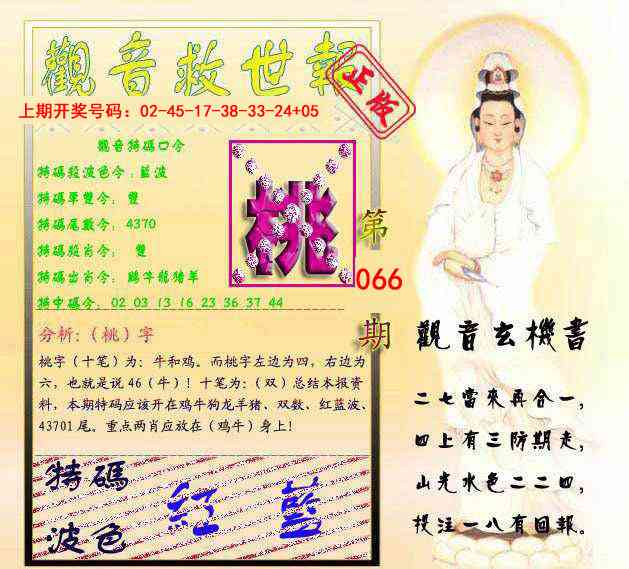 觀音救世報
正版
上期开奖号码：02-45-17-38-33-24+05
觀音特碼口令
特碼發波色令：藍波
特碼單雙令： 雙
特碼尾數令：4370
特碼發肖令： 雙
特碼出肖令：鷄牛龍猪羊
特中碼令：02 03 13 16 23 36 37 44
桃
第
066
期
分析：（桃）字
桃字（十笔）为：牛和鸡。而桃字左边为四，右边为
六，也就是说 46（牛）！十笔为：（双）总结本报资
料，本期特码应该开在鸡牛狗龙羊猪、双数、红蓝波、
43701 尾。重点两肖应放在（鸡牛）身上！
特碼
波色
紅 藍
觀音玄機書
二七當來再合一，
四上有三防期走，
山光水色二二四，
投注一八有回報。